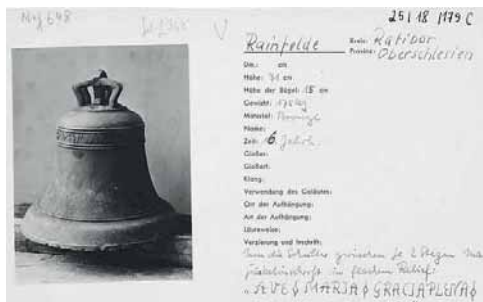 25 | 18 | 179 C
Rainfelde Kreis: Ratibor
Provinz: Oberschlesien
Dm.: cm
Höhe: 31 cm
Höhe der Bügel: 15 cm
Gewicht: kg
Material: Bronze
Name:
Zeit: 16. Jahrh.
Gießer:
Gießart:
Klang:
Verwendung des Geläutes:
Ort der Aufhängung:
Art der Aufhängung:
Läuteweise:
Verzierung und Inschrift:
Um die Schulter zwischen je 2 Stegen
in flachem Relief:
"AVE MARIA GRACIA PLENA